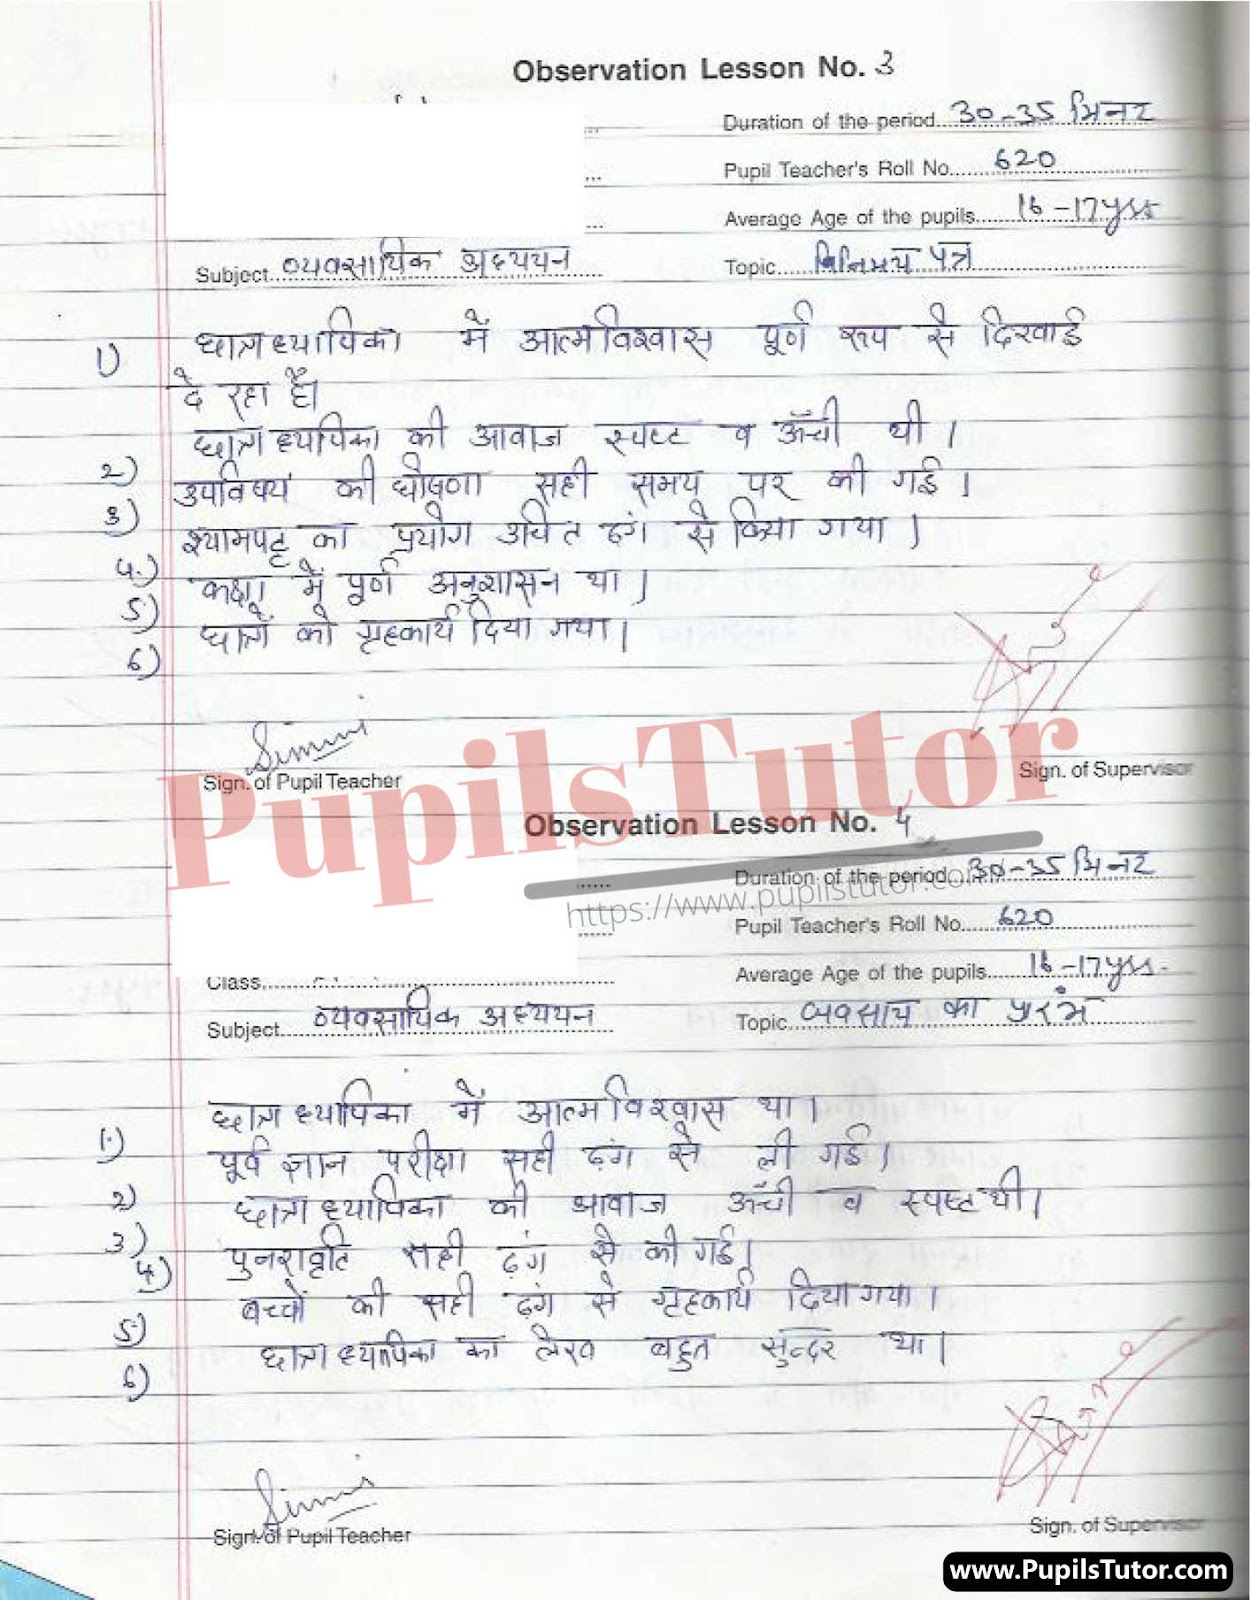 Observation Lesson No. 3
Duration of the period 30-35 मिनट
Pupil Teacher's Roll No. 620
Average Age of the pupils 16-17yrs
Subject व्यवसायिक अध्ययन
Topic विनिमय पत्र
1) छात्राध्यापिका में आत्मविश्वास पूर्ण रूप से दिखाई
दे रहा है।
छात्राध्यापिका की आवाज स्पष्ट व ऊँची थी।
2) उपविषय की घोषणा सही समय पर की गई।
3) श्यामपट्ट का प्रयोग उचित ढंग से किया गया।
4.) कक्षा में पूर्ण अनुशासन था।
5) छात्रों को गृहकार्य दिया गया।
6)
Simmi
Sign. of Pupil Teacher
Sign. of Supervisor
PupilsTutor
https://www.pupilstutor.com
Observation Lesson No. 4
Duration of the period 30-35 मिनट
Pupil Teacher's Roll No. 620
Class
Average Age of the pupils 16-17yrs.
Subject व्यवसायिक अध्ययन
Topic व्यवसाय का प्रारंभ
छात्राध्यापिका में आत्मविश्वास था।
1.) पूर्व ज्ञान परीक्षा सही ढंग से ली गई।
2) छात्राध्यापिका की आवाज ऊँची व स्पष्ट थी।
3) पुनरावृति सही ढंग से की गई।
4) बच्चों को सही ढंग से गृहकार्य दिया गया।
5) छात्राध्यापिका का लेख बहुत सुन्दर था।
6)
Simmi
Sign. of Pupil Teacher
Sign. of Supervisor
www.PupilsTutor.com